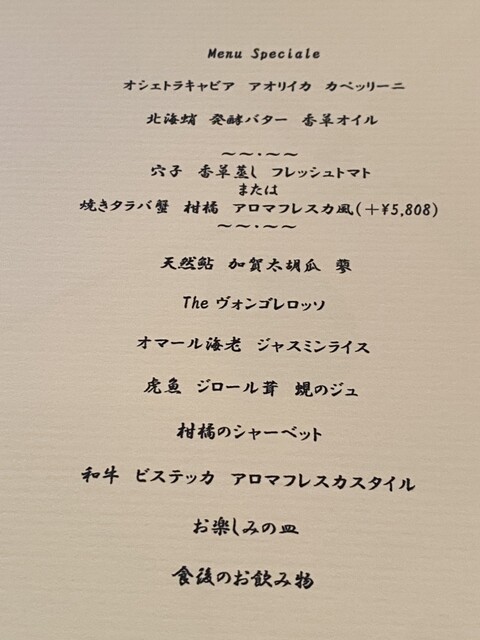 Menu Speciale
オシェトラキャビア アオリイカ カペッリーニ
北海蛸 発酵バター 香草オイル
～～・～～
穴子 香草蒸し フレッシュトマト
または
焼きタラバ蟹 柑橘 アロマフレスカ風(＋¥5,808)
～～・～～
天然鮎 加賀太胡瓜 蓼
The ヴォンゴレロッソ
オマール海老 ジャスミンライス
虎魚 ジロール茸 蜆のジュ
柑橘のシャーベット
和牛 ビステッカ アロマフレスカスタイル
お楽しみの皿
食後のお飲み物